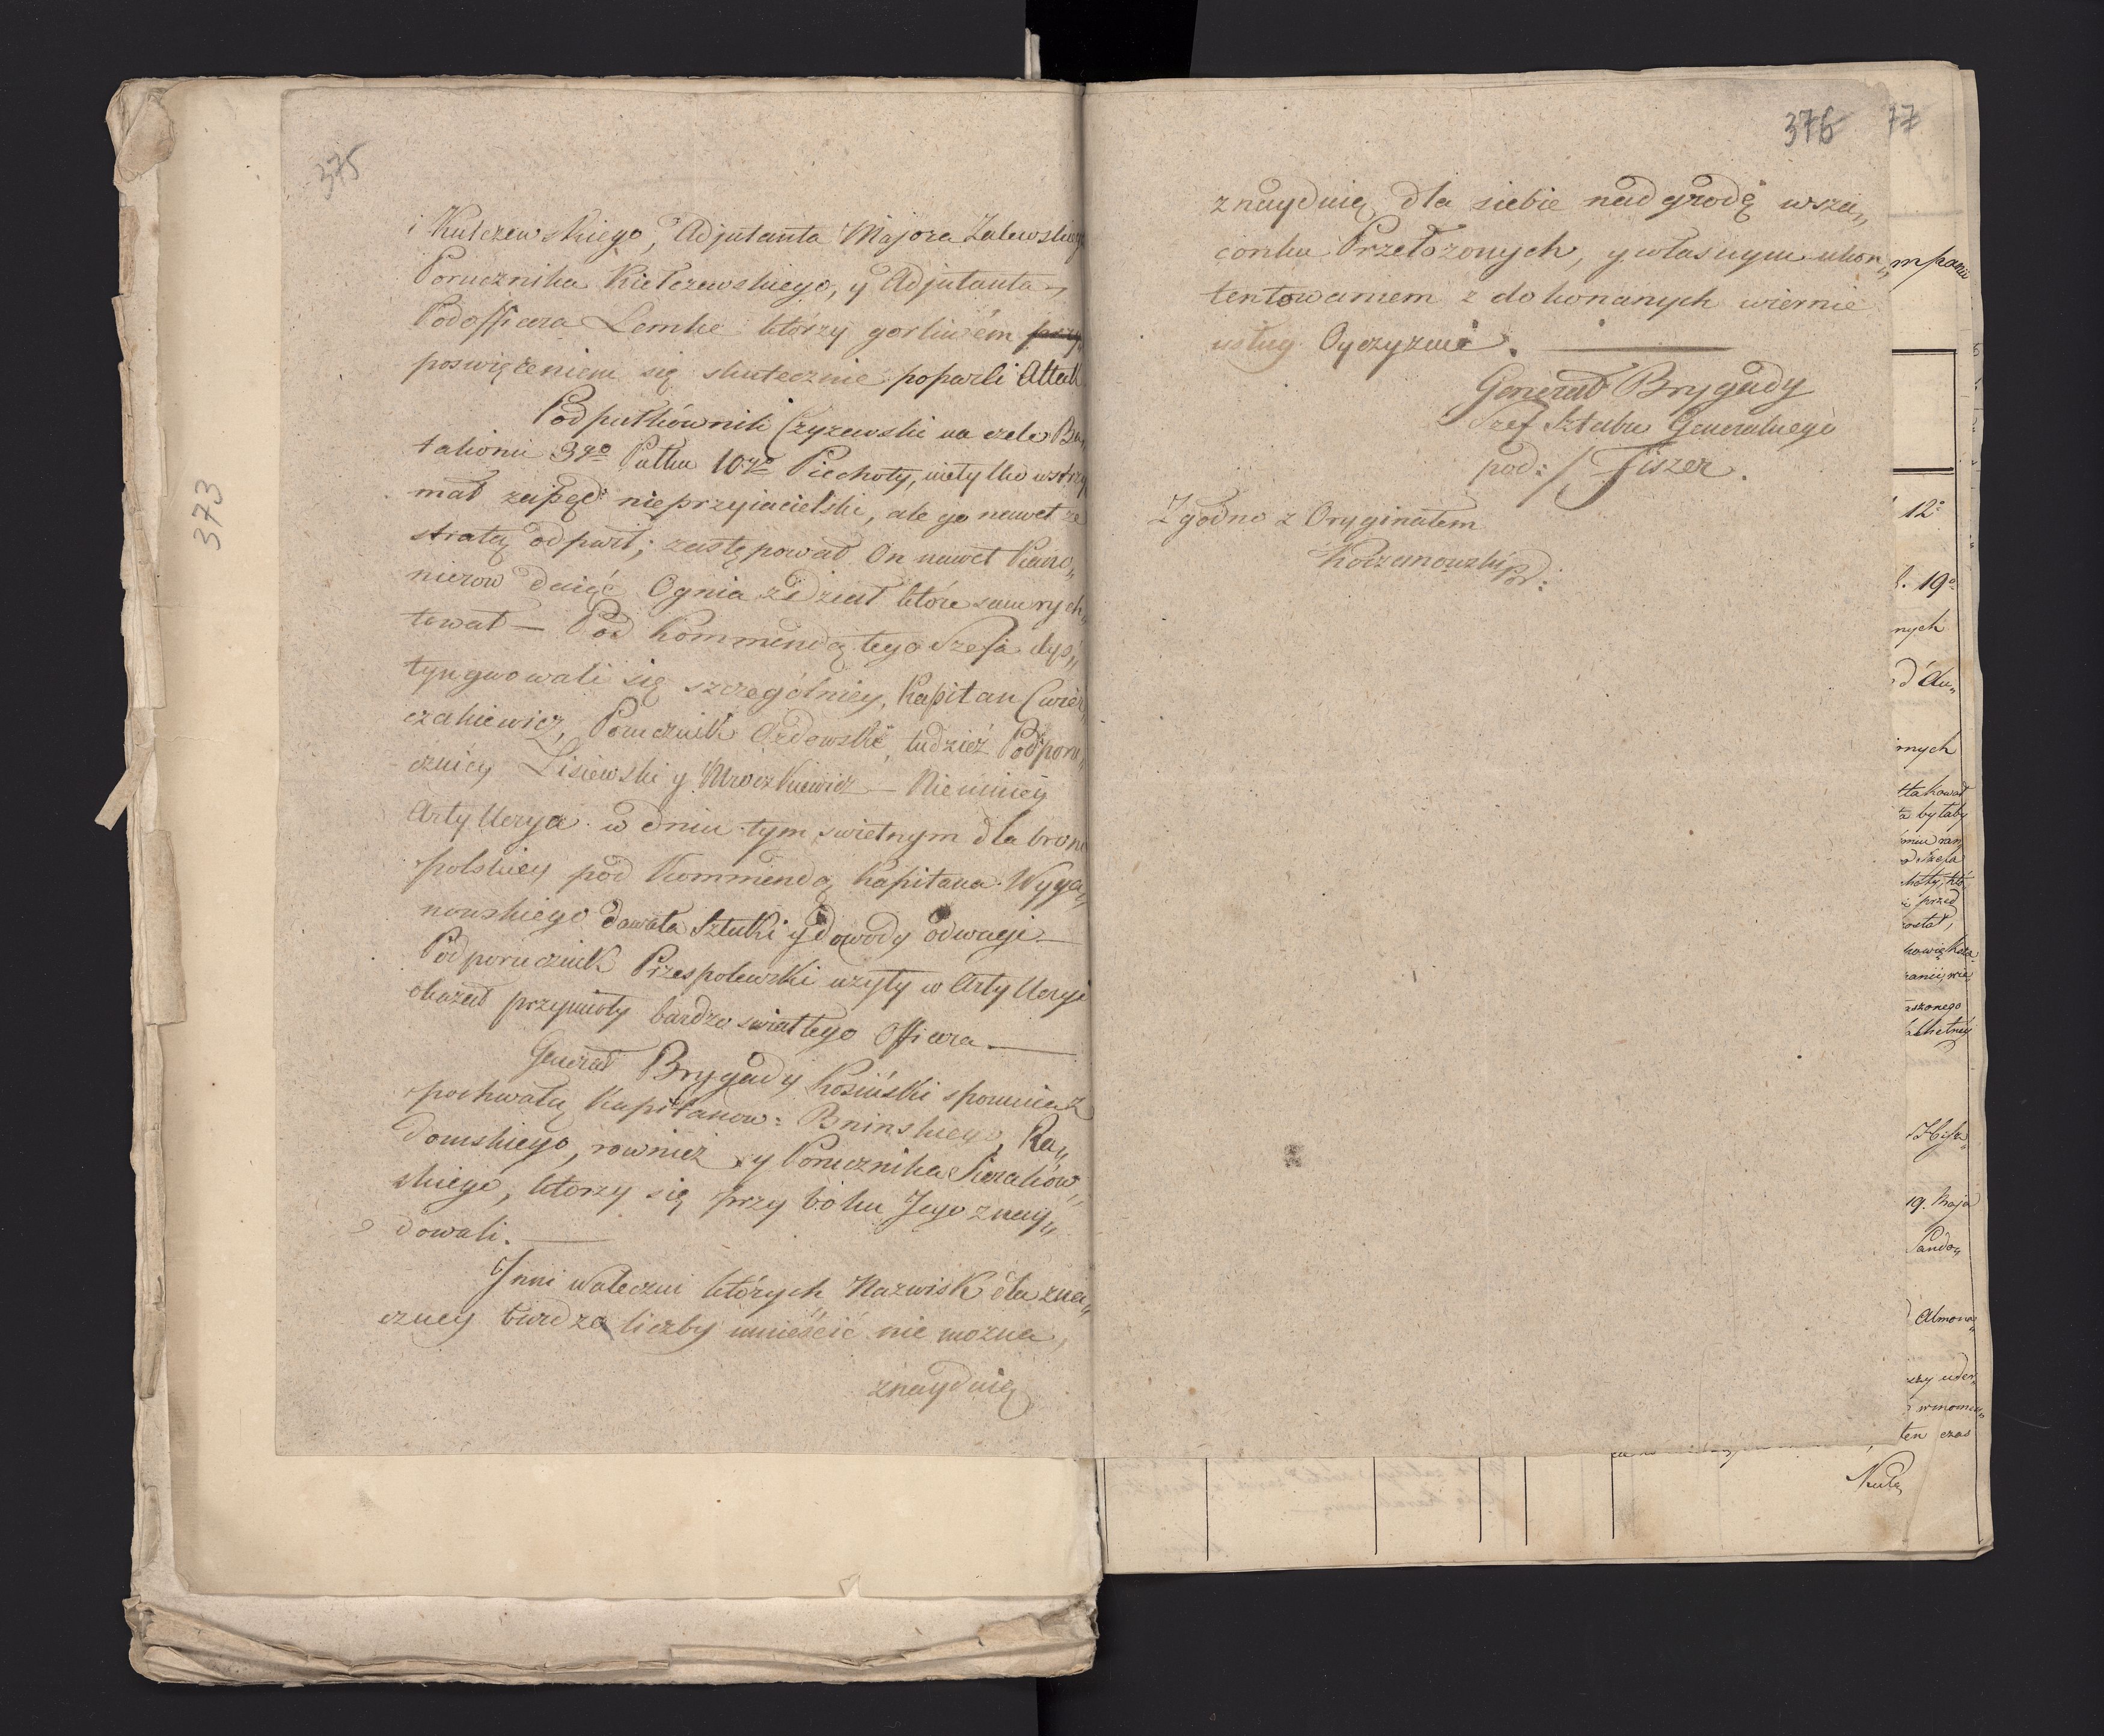 375
373
i Kulczewskiego, Adjutanta Majora Zalewskiego
Porucznika Kiełczewskiego, y Adjutanta
Podofficera Lemke którzy gorliwém przy„
poswięceniem się skutecznie poparli Attak
Podpułkównik Czyzewski na czele Ba„
talionu 3go Pułku 10go Piechoty, nietylko wstrzy
mał zapęd nieprzyiacielski, ale go nawet ze
stratą odparł; zastępował On nawet Kano„
nierow daiąć Ognia z dział które sam rych„
tował — Pod Kommendą tego Szefa dys„
tyngwowali się szczególniey, Kapitan Cwier„
czakiewicz, Porucznik Ordowski, tudzież Podporu„
cznicy Lisiewski y Mroczkiewicz — Niemniey
Artyllerya w dniu tym swietnym dla broni
polskiey pod Kommendą Kapitana Wyga„
nowskiego dawała Sztuki y dowody odwagi —
Podporucznik Przespolewski użyty w Artylleryi
okazał przymioty bardzo swiatłego Officera. —
Generał Brygady Kosiński spomina z
pochwałą Kapitanow: Bninskiego, Ra„
domskiego, rownież y Porucznika Sierakow„
skiego, ktorzy się przy boku Jego znay„
dowali. —
Inni waleczni których Nazwisk dla zna„
czney bardzo liczby umieścić nie mozna,
znayduią
376 77
znayduią dla siebie nadgrodę w sza„
cunku Przełozonych, y własnym ukon„
tentowaniem z dokonanych wiernie
usług Oyczyznie. —
Generał Brygady
Szef Sztabu Generalnego
pod: / Fiszer.
Zgodno z Oryginałem
mpanii
12o
19o
nych
d'Au„
rnych
ttakował
a byłaby
Szefa
przed
został,
aszonego
achetney
19. Maja
Almona„
ten czas